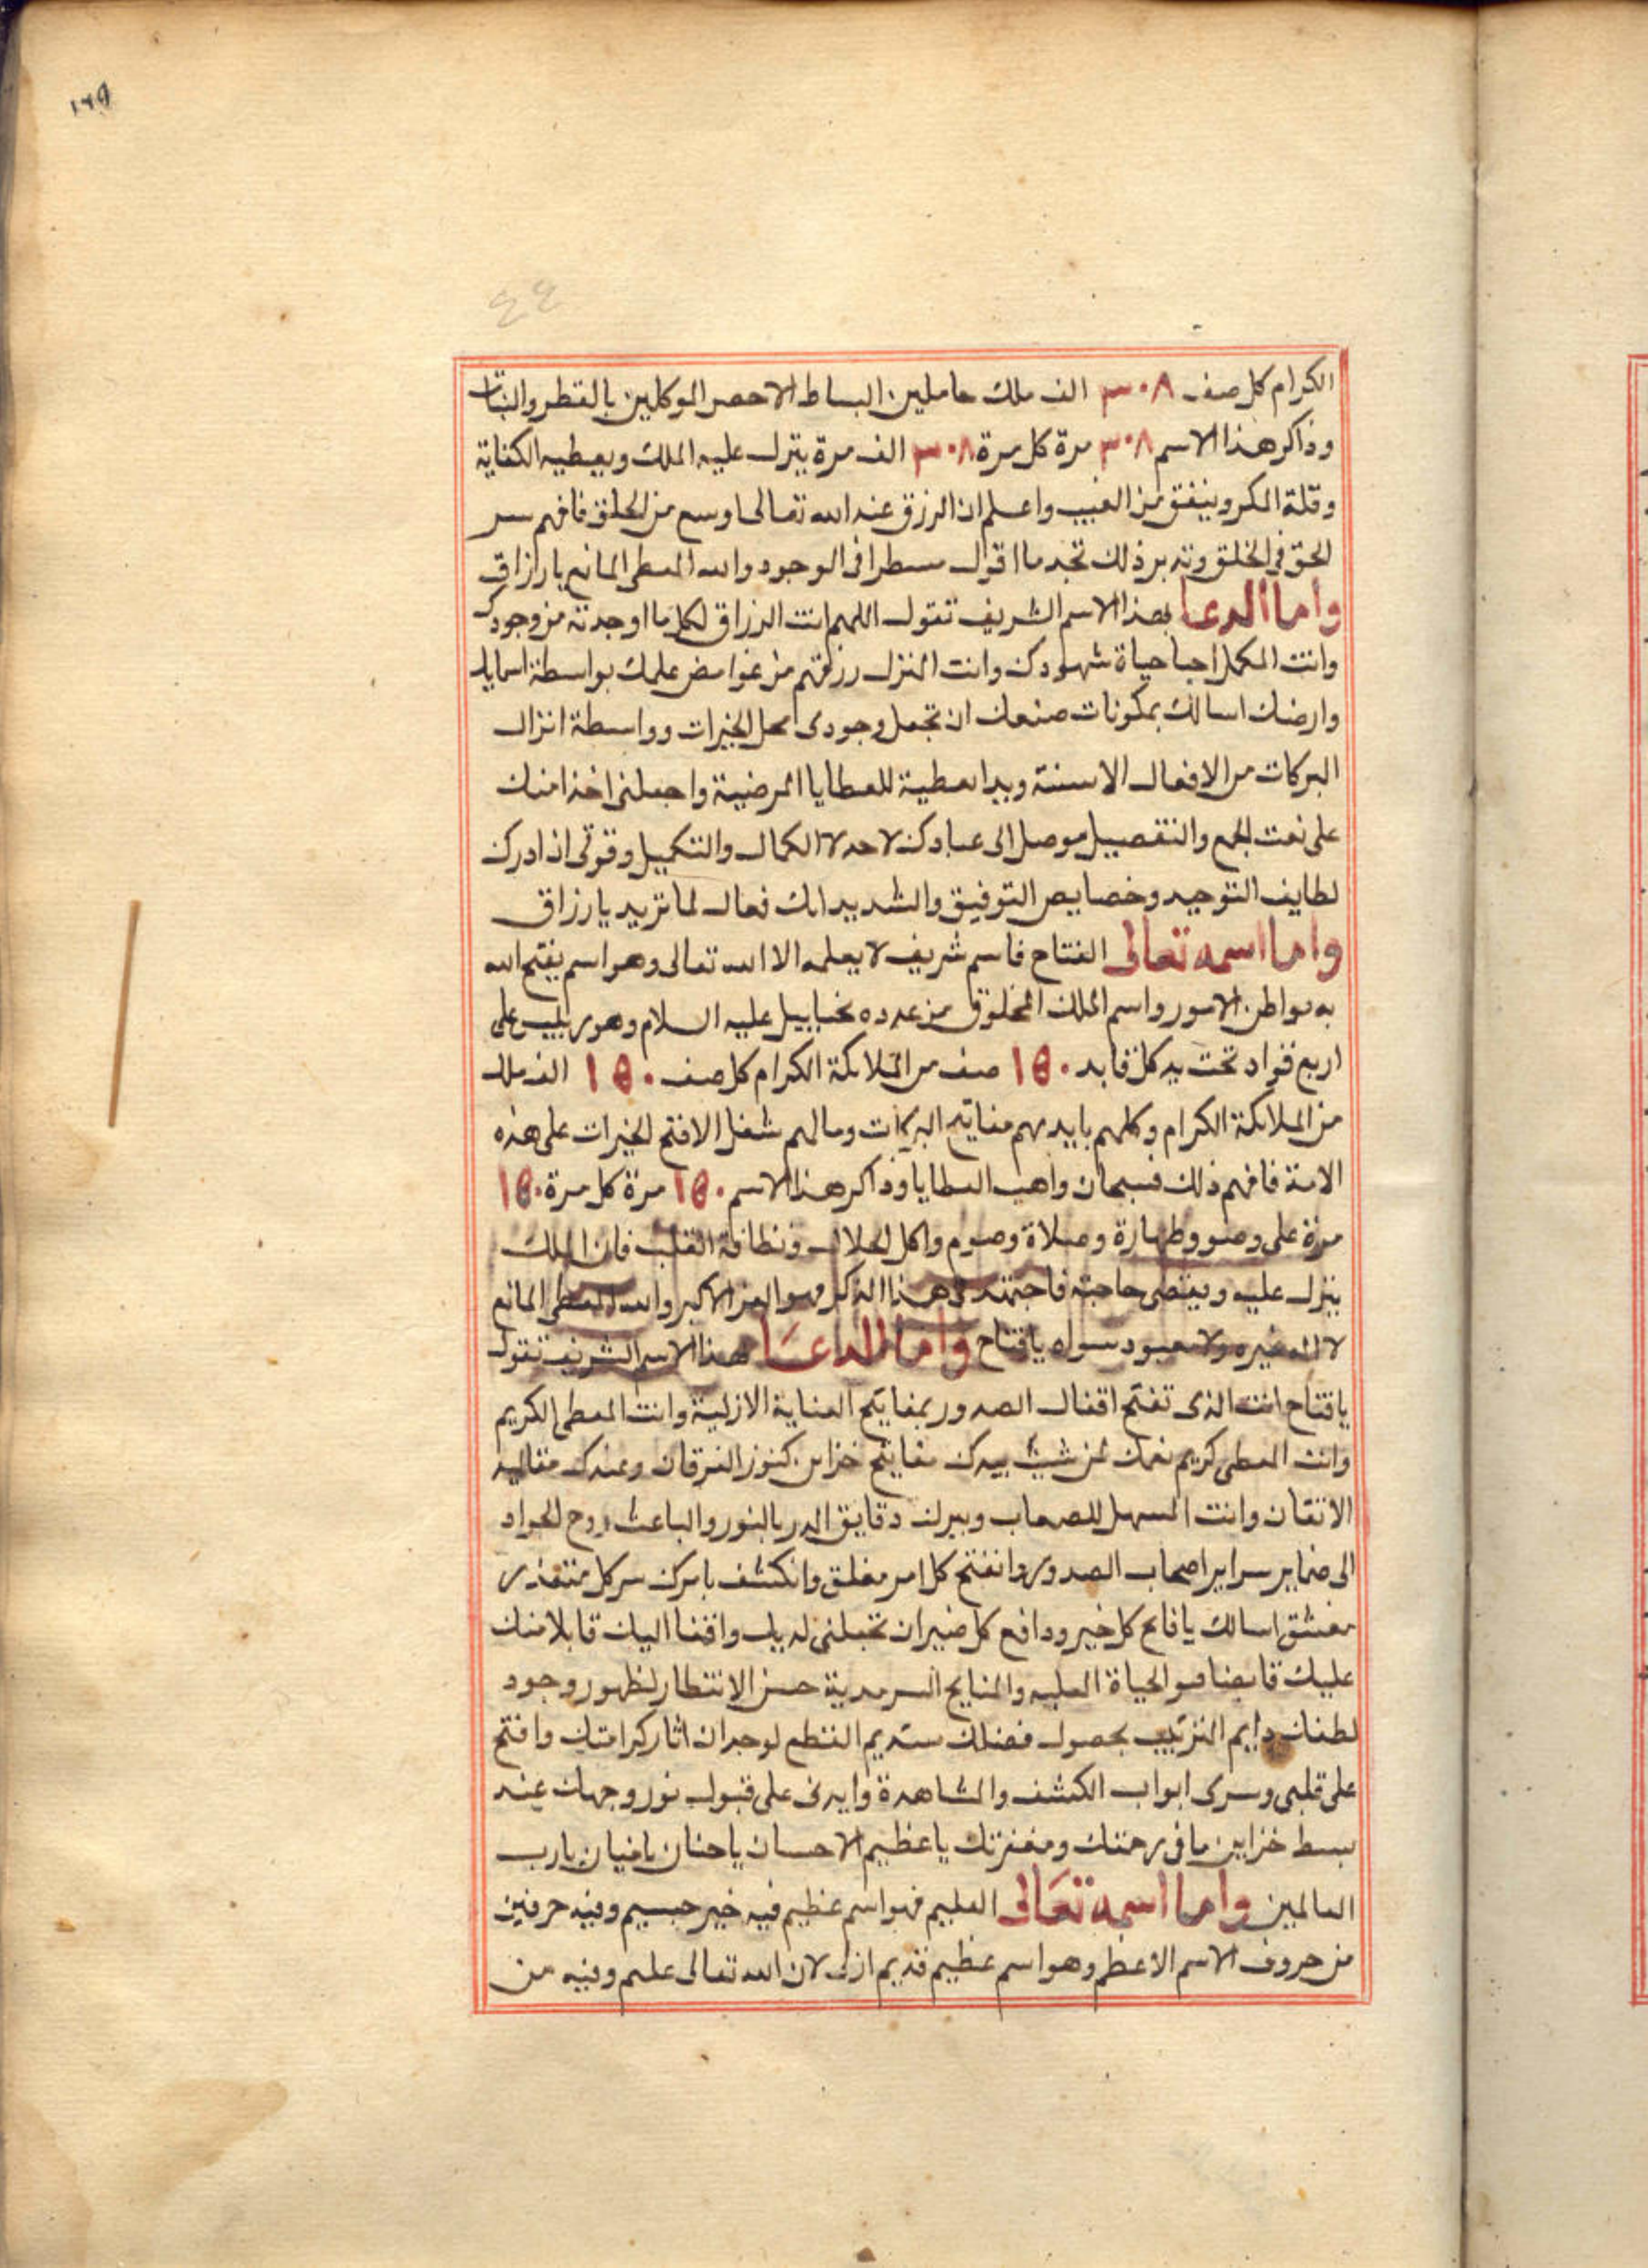 ١٢٩
٤٤
الكرام كل صف ٣٠٨ الف ملك حاملين البساط الاحصر الموكلين بالقطر والنبات
وذاكر هذا الاسم ٣٠٨ مرة كل مرة ٣٠٨ الف مرة ينزل عليه الملك ويعطيه الكفاية
وقلة المكر وينفق من الغيب واعلم ان الرزق عند الله تعالى اوسع من الخلق فافهم سر
الحق في الخلق وتدبر ذلك تجد ما اقول مسطرا في الوجود والله المعطى المانع يا رازق
واما الدعا بهذا الاسم الشريف تقول اللهم انت الرزاق لكل ما اوجدته من وجودك
وانت المكمل احبا حياة شهودك وانت المنزل رزقهم من غوامض علمك بواسطة اسمايك
وارضك اسالك بمكونات صنعك ان تجعل وجودى محل الخيرات وواسطة انزال
البركات من الافعال الاسنة ويدا معطية للعطايا المرضية واجعلنى اخذا منك
على نعت الجمع والتفصيل موصل الى عبادك لاحد لا الكمال والتكميل وقوتى اذ ادرك
لطايف التوحيد وخصايص التوفيق والشديد انك فعال لما تريد يا رزاق
واما اسمه تعالى الفتاح فاسم شريف لا يعلمه الا الله تعالى وهو اسم يفتح الله
به بواطن الامور واسم الملك المخلوق من عدده تخياييل عليه السلام وهو ريس على
اربع قواد تحت يد كل قايد ١٥٠ صف من الملائكة الكرام كل صف ١٥٠ الف ملك
من الملائكة الكرام وكلهم بايديهم مفاتيح البركات ومالهم شغل الا فتح الخيرات على هذه
الامة فافهم ذلك فسبحان واهب العطايا وذاكر هذا الاسم ١٥٠ مرة كل مرة ١٥٠
مرة على وضو وطهارة وصلاة وصوم واكل الحلال ونظافة القلب فان الملك
ينزل عليه ويقضى حاجته فاجتهد فى هذا الذكر فهو العز الاكبر والله المعطى المانع
لا اله غيره ولا معبود سواه يا فتاح واما الدعا بهذا الاسم الشريف تقول
يا فتاح انت الذى تفتح اقفال الصدور بمفاتيح العناية الازلية وانت المعطى الكريم
وانت المعطى كريم نعمك لمن شيت بيدك مفاتيح خزاين كنوز الفرقان وعندك مقاليد
الاتقان وانت المسهل للصعاب وبيرك دقايق الدر بالنور والباعث روح الجواد
الى ضماير سراير اصحاب الصدور وانفتح كل امر مغلق وانكشف بامرك سر كل متعذر
مغشق اسالك يا فاتح كل خير ودافع كل ضير ان تجعلنى لديك واقفا اليك قابلا منك
عليك قابضا الحياة العليه والمنايح السرمدية حسن الانتظار لظهور وجود
لطفك دايم الترتيب بحصول فضلك ستديم النطع لوجدان اثار كرامتك وافتح
على قلبى وسرى ابواب الكشف والمشاهدة وايدنى على قبول نور وجهك عند
بسط خزاين ما فى رحمتك ومغفرتك يا عظيم الاحسان يا حنان يا منان يا رب
العالمين واما اسمه تعالى العليم فهو اسم عظيم فيه خير جسيم وفيه حرفين
من حروف الاسم الاعظم وهو اسم عظيم قديم ازلى لان الله تعالى عليم وفيه من